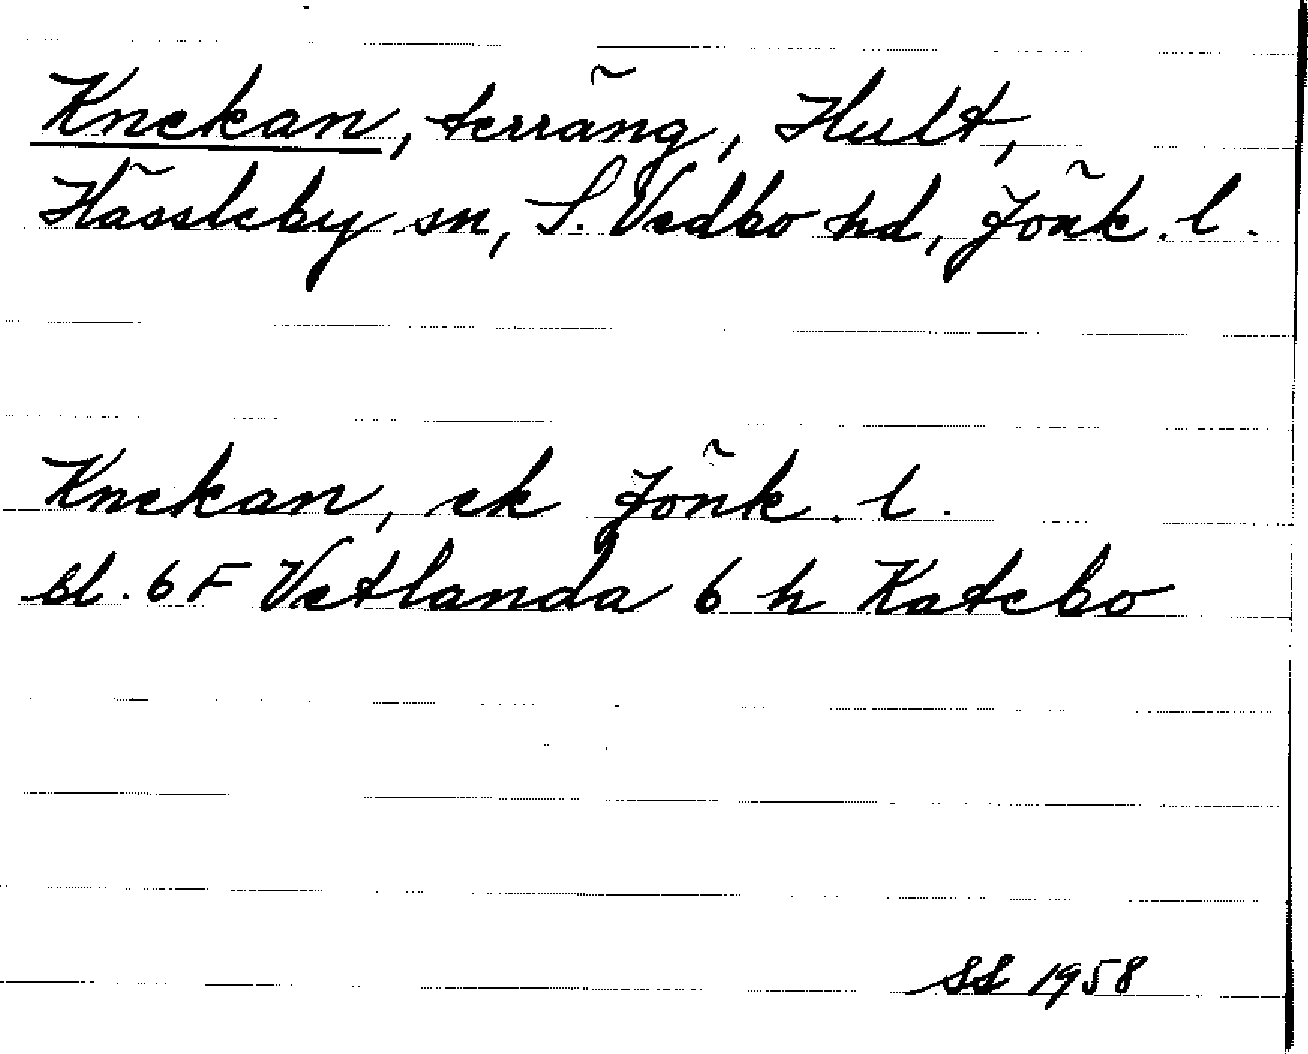 Knekan, terräng, Hult,
Hässleby sn, S. Vedbo hd, Jönk. l.
Knekan, ek Jönk. l.
bl. 6 F Vetlanda 6 h Katebo
SS 1958